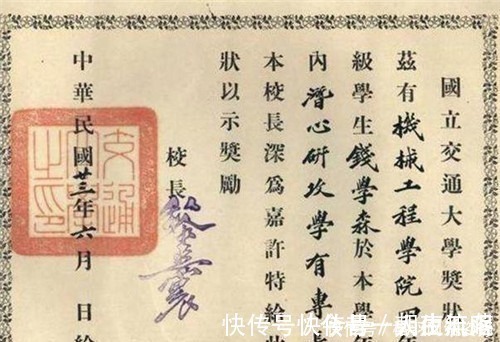 國立交通大學獎狀
茲有機械工程學院四年
級學生錢學森於本學年
內潛心研攻學有專長
本校長深為嘉許特給此
狀以示獎勵
校長
黎照寰
中華民國廿三年六月 日給
交通大學之印
快传号